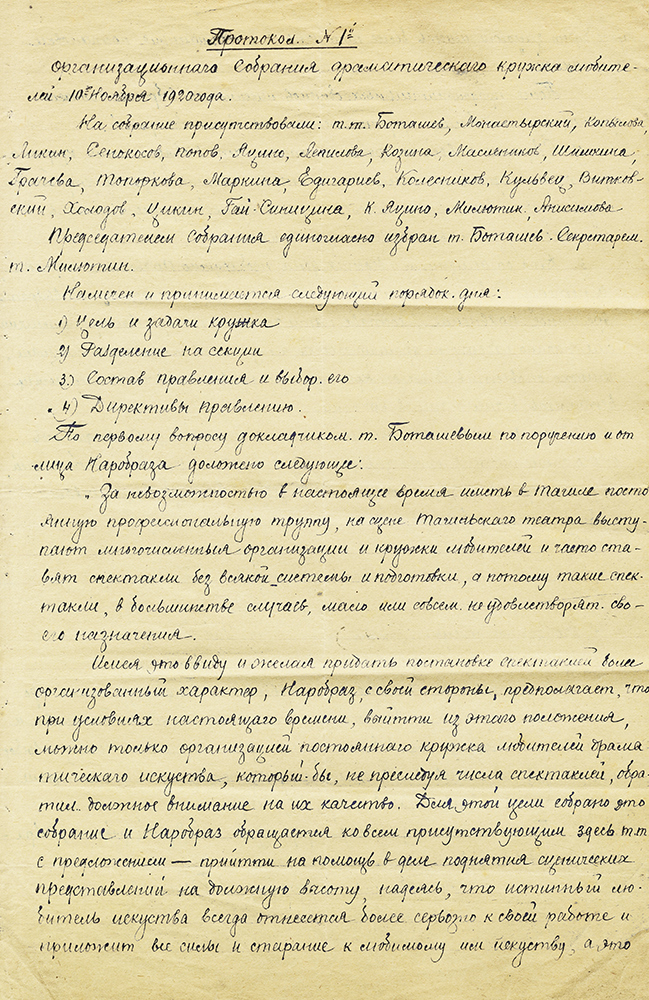 Протокол. № 1й
организационнаго собрания драматического кружка любите-
лей 10го Ноября 1920 года.
На собрание присутствовали: т.т. Боташев, Монастырский, Копылова,
Ликин, Сенокосов, Попов, Яцино, Денисова, Козина, Маслеников, Шишкина,
Грачева, Топоркова, Маркина, Едигариев, Колесников, Кульвец, Витков-
ский, Холодов, Цикин, Гай-Синицина, К. Яцино, Милютин, Анисимова
Председателем собрания единогласно избран т. Боташев. Секретарем.
т. Милютин.
Намечен и принимается следующий порядок дня:
1) Цель и задачи кружка
2) Разделение на секции
3) Состав правления и выбор. его
4) Директивы правлению.
По первому вопросу докладчиком. т. Боташевым по поручению и от
лица Наробраза доложено следующее:
„За невозможностью в настоящее время иметь в Тагиле посто
янную профессиональную труппу, на сцене Тагильского театра высту-
пают многочисленныя организации и кружки любителей и часто ста-
вят спектакли без всякой системы и подготовки, а потому такие спек-
такли, в большинстве случаев, мало или совсем не удовлетворят сво-
его назначения.
Имея это ввиду и желая придать постановке спектаклей более
организованный характер, Наробраз, с своей стороны, предполагает, что
при условиях настоящаго времени, выйтти из этаго положения,
можно только организацией постояннаго кружка любителей драма
тического искуства, который-бы, не преследуя числа спектаклей, обра-
тил должное внимание на их качество. Для этой цели собрано это
собрание и Наробраз обращается ко всем присутствующим здесь т.т.
с предложением — прийтти на помощь в деле поднятия сценических
представлений на должную высоту, надеясь, что истинный лю-
битель искуства всегда отнесется более серьозно к своей работе и
приложит все силы и старание к любимому им искуству, а это